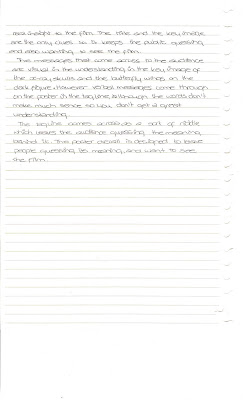 insight to the film. The title and the key image
are the only clues so it keeps the public guessing
and also wanting to see the film.
The messages that come across to the audience
are visual in the understanding in the key image of
the skulls and the butterfly wings on the
dark figure. However verbal messages come through
on the poster in the tag line, although the words don't
make much sence so you don't get a great
understanding.
The tagline comes across as a sort of riddle
which leaves the audience guessing the meaning
behind it. This poster overall is designed to leave
people guessing its meaning, and want to see
the film.